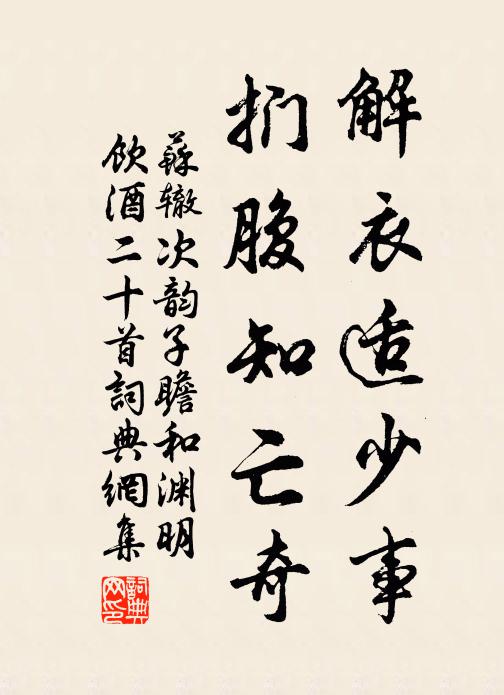 解衣适少事
捫腹知亡奇
蘇辙次韵子瞻和渊明
飲酒二十首詞典網集
詞典网印